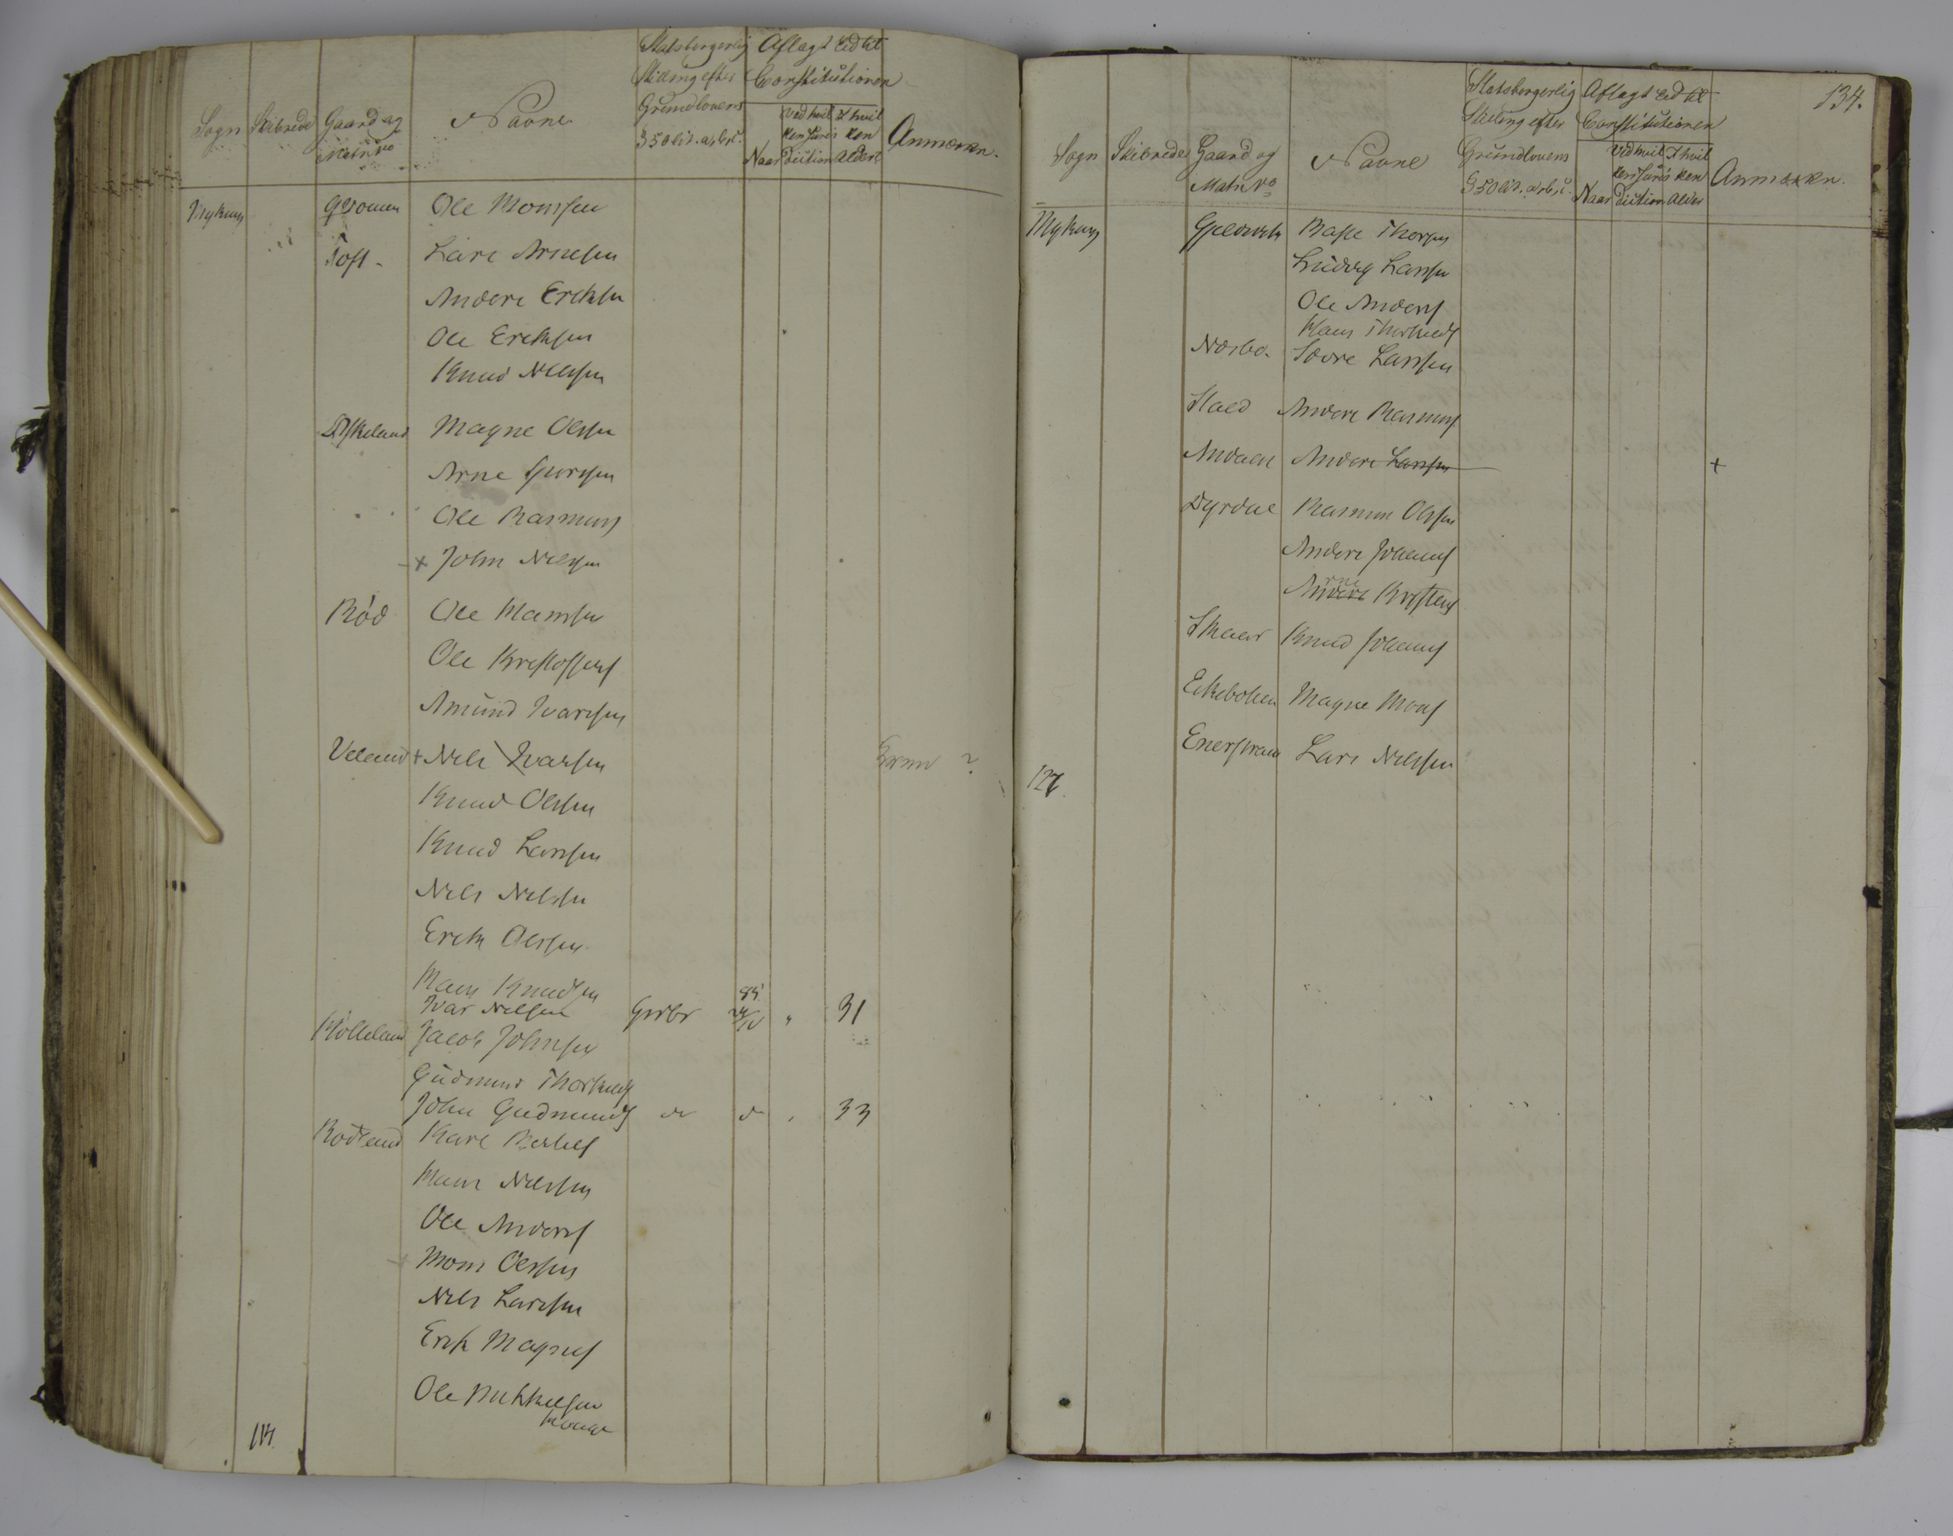 Sogn Skibrede Gaard og Matr No Navne Statsborgerlig Stilling efter Grundlovens § 50 lit. a, b, c. Aflagt Ed til Constitutionen Naar Ved hvilken Jurisdiction I hvilken Alder Anmærkn.
Myking Qvomen Ole Monsen
Toft - Lars Arnesen
Anders Eriksen
Ole Eriksen
Knud Nilssen
Eskeland Magne Olsen
Arne
Ole Rasmuss
+ John Nilssen
Röd Ole Hansen
Ole Kristoffers
Amund Ivarsen
Veland + Nils Ivarsen ?
Knud Olssen
Knud Larssen
Nils Nilssen
Erik Olssen
Hans Knudsen
Ivar Nilssen Grdbr 85 24/10 " 31
Kolleland Jacob Johnsen
Gudmund Thorkilds
John Gudmunds do do " 33
Rodland Karl
Hans Nilssen
Ole Anders
Mons Olssen
Nils Larssen
Erik Magnes
Ole Mikkelsen
114
134.
Sogn Skibrede Gaard og Matr No Navne Statsborgerlig Stilling efter Grundlovens § 50 lit. a, b, c. Aflagt Ed til Constitutionen Naar Ved hvilken Jurisdiction I hvilken Alder Anmærkn.
Myking Gjelvik Thorsen
Ludvig Larssen
Ole Anders
Hans Thorkilds
Nordbo. Larssen
Anders Rasmuss
Andaas Anders Larssen +
Dyrdal Rasmus Olssen
Anders Johanns
Anders Arne Kristens
Skaar Knud Johanns
Eikebolen Magne Mons
Lars Nilssen
127.